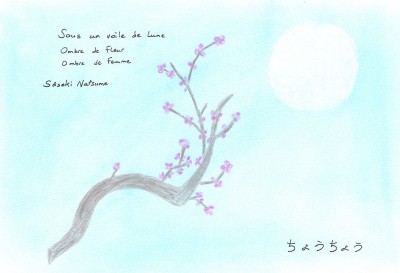 Sous un voile de Lune
Ombre de Fleur
Ombre de Femme
Sôseki Natsume
ちょうちょう